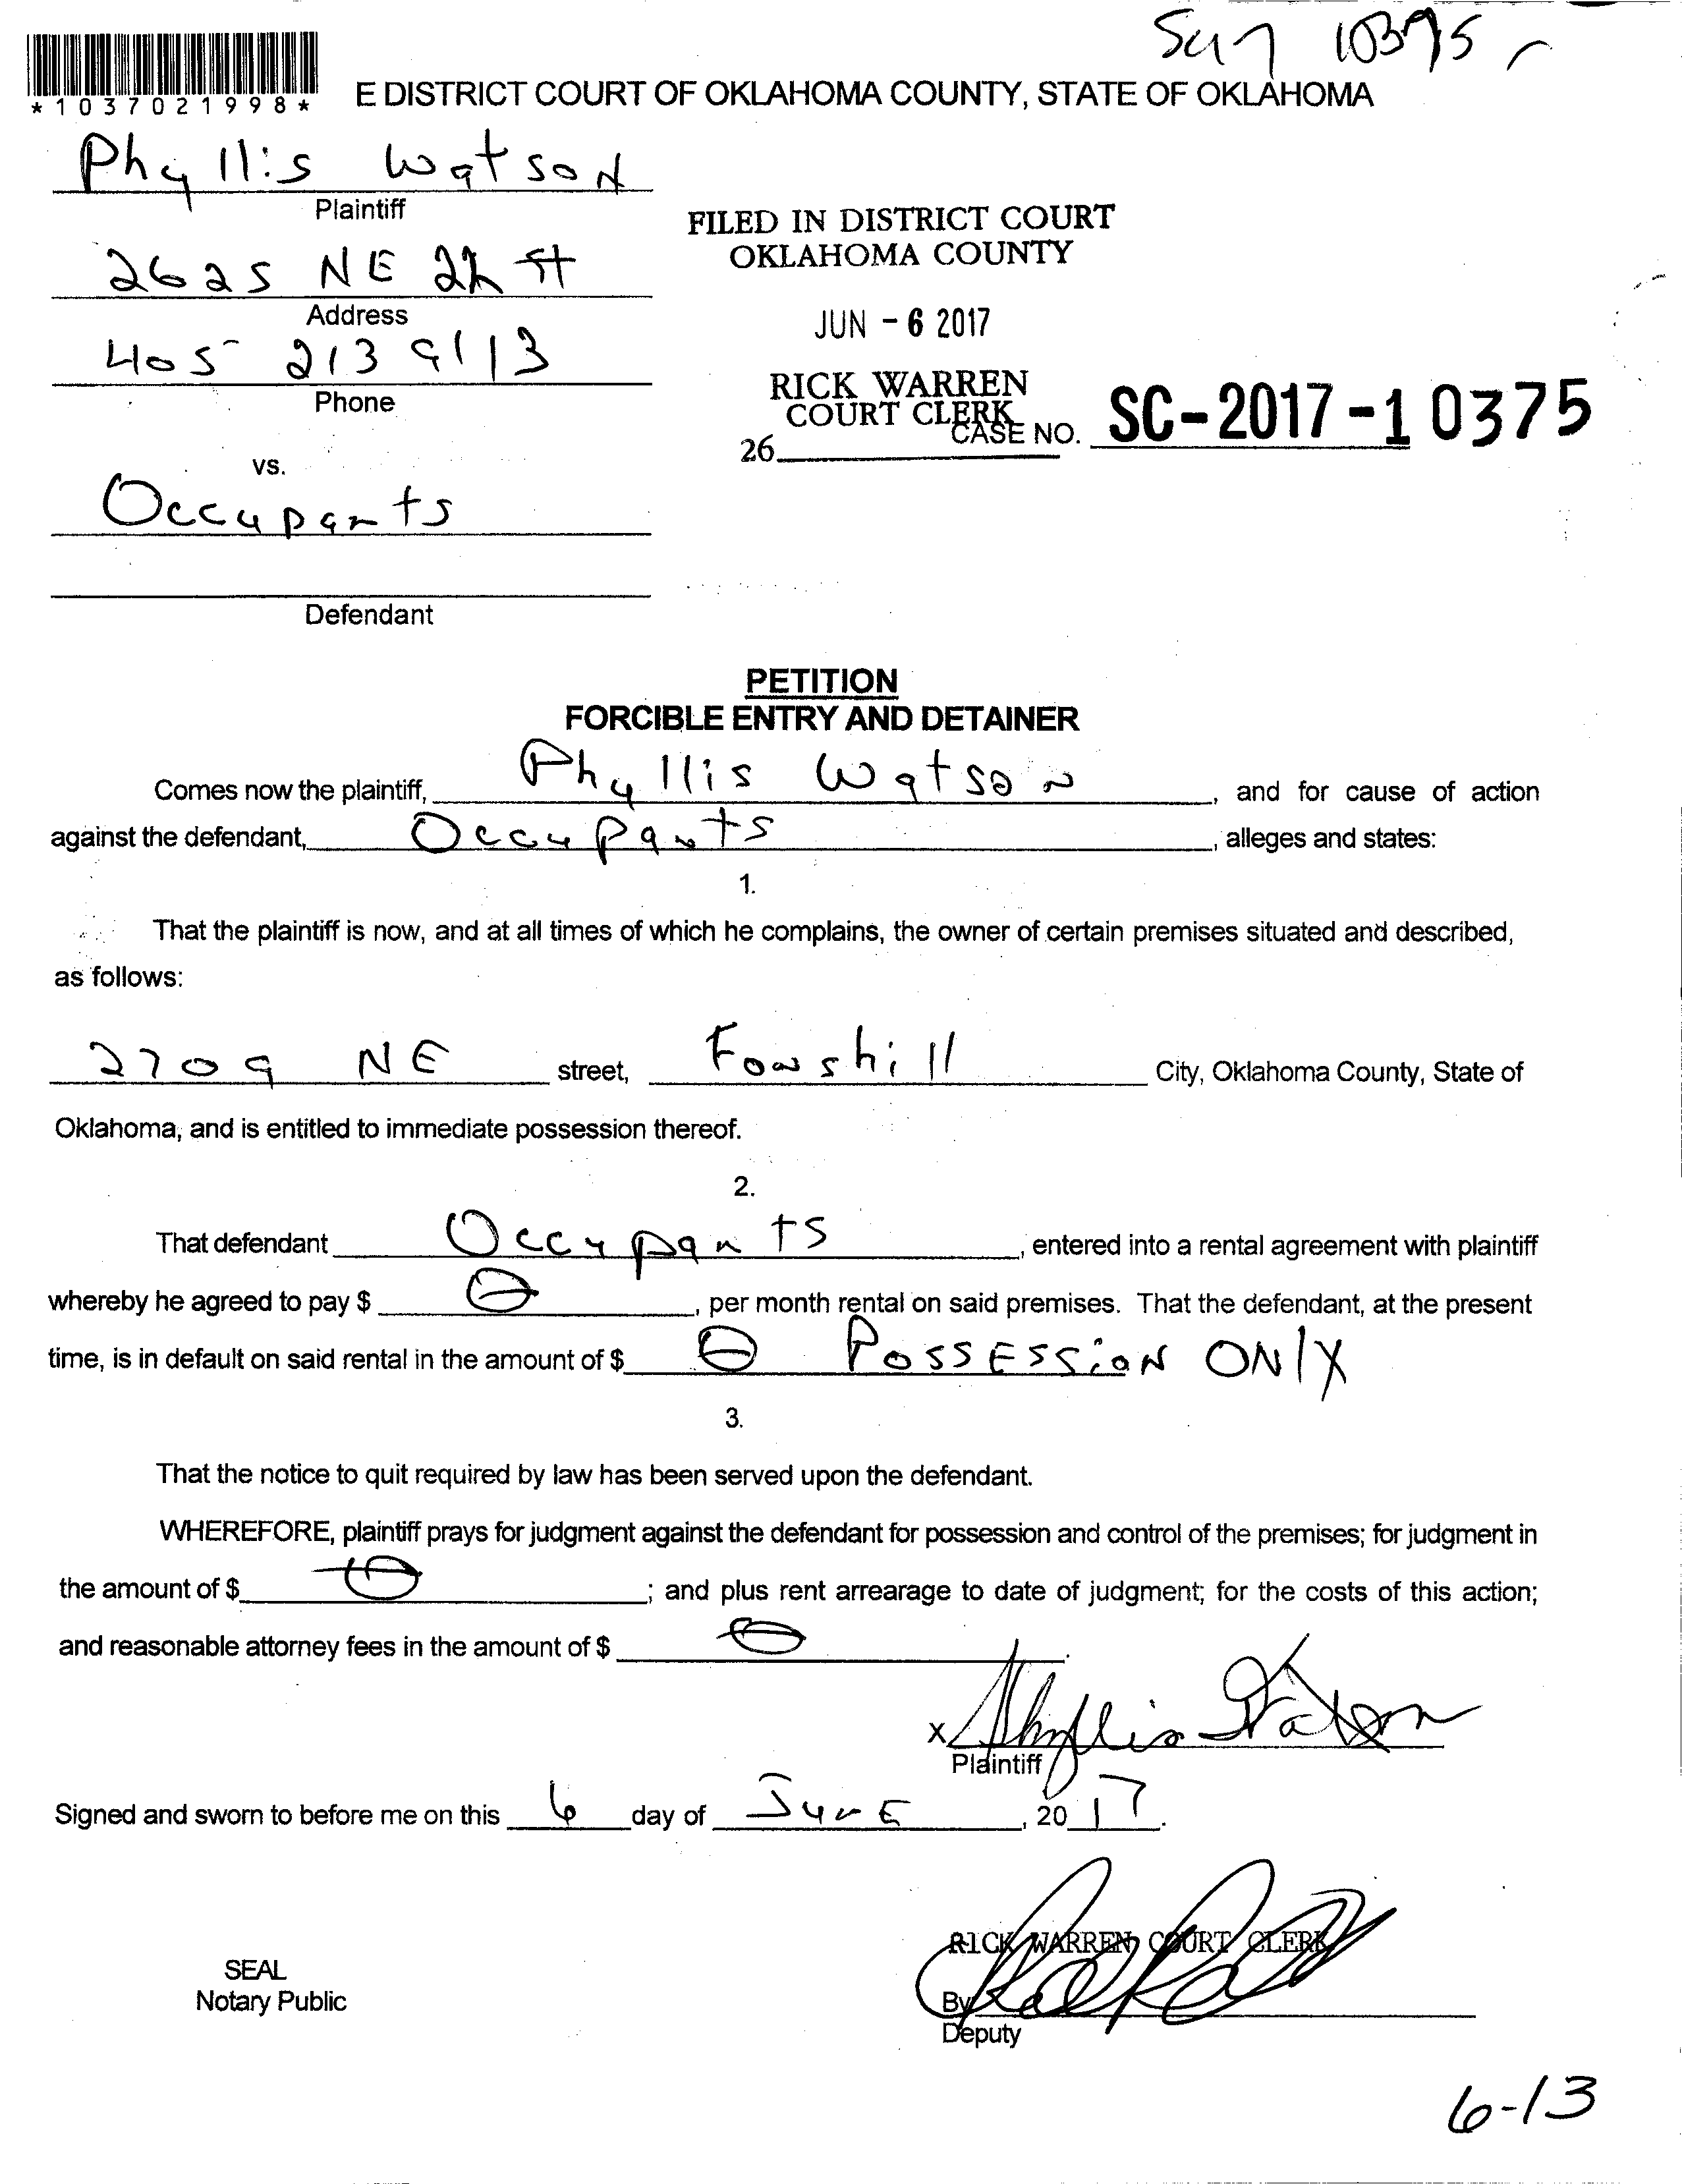 *1037021998*
E DISTRICT COURT OF OKLAHOMA COUNTY, STATE OF OKLAHOMA
Phyllis Watson
Plaintiff
FILED IN DISTRICT COURT
OKLAHOMA COUNTY
2625 NE 22 St
Address
JUN - 6 2017
405 213 9113
Phone
RICK WARREN
COURT CLERK
CASE NO. SC-2017-10375
26
vs.
Occupants
Defendant
PETITION
FORCIBLE ENTRY AND DETAINER
Comes now the plaintiff, Phyllis Watson, and for cause of action
against the defendant, Occupants, alleges and states:
1.
That the plaintiff is now, and at all times of which he complains, the owner of certain premises situated and described,
as follows:
2709 NE street, City, Oklahoma County, State of
Oklahoma, and is entitled to immediate possession thereof.
2.
That defendant Occupants, entered into a rental agreement with plaintiff
whereby he agreed to pay $ 0, per month rental on said premises. That the defendant, at the present
time, is in default on said rental in the amount of $ 0 POSSESSiON ONlY
3.
That the notice to quit required by law has been served upon the defendant.
WHEREFORE, plaintiff prays for judgment against the defendant for possession and control of the premises; for judgment in
the amount of $ 0; and plus rent arrearage to date of judgment; for the costs of this action;
and reasonable attorney fees in the amount of $ 0.
x Phyllis Watson
Plaintiff
Signed and sworn to before me on this 6 day of JunE, 20 17.
RICK WARREN COURT CLERK
SEAL
Notary Public
By
Deputy
6-13